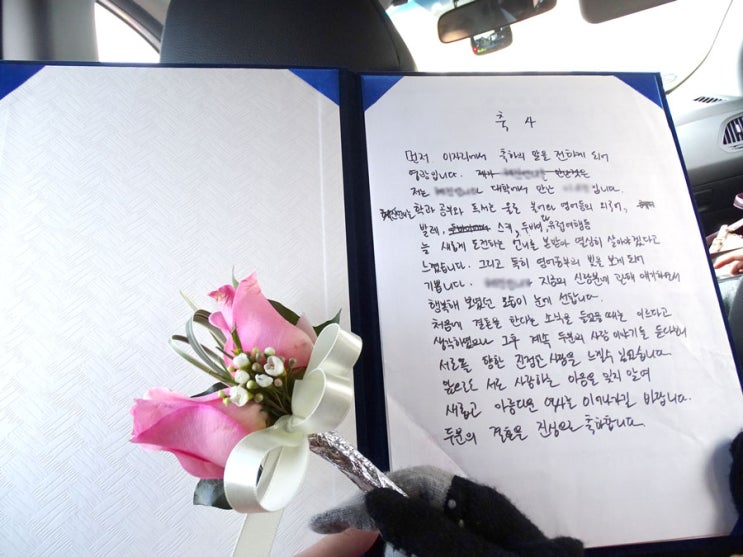 축 사
먼저 이자리에서 축하의 말을 전하게 되어
영광입니다. 제가 만난것은
저는 대학에서 만난 입니다.
학과 공부와 독서는 물론 불어와 영어등의 외국어,
발레, 스키, 두바이 및 유럽여행등
늘 새롭게 도전하는 언니를 본받아 열심히 살아야겠다고
느꼈습니다. 그리고 특히 영어공부의 빛을 보게 되어
기쁩니다. 지금의 신랑분에 관해 얘기하면서
행복해 보였던 모습이 눈에 선합니다.
처음에 결혼을 한다는 소식을 들었을 때는 이르다고
생각하였으나 그후 계속 두분의 사랑 이야기를 듣다보니
서로를 향한 진정한 사랑을 느낄수 있었습니다.
앞으로도 서로 사랑하는 마음을 잊지 말며
새롭고 아름다운 역사를 이뤄가길 바랍니다.
두분의 결혼을 진심으로 축하합니다.